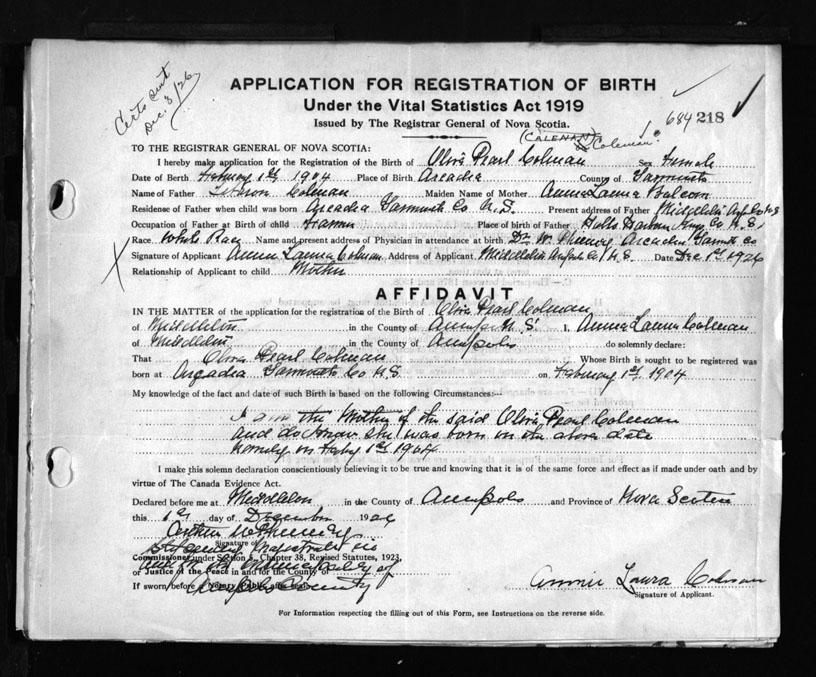 Certs sent
Dec. 3/26
APPLICATION FOR REGISTRATION OF BIRTH
Under the Vital Statistics Act 1919
Issued by The Registrar General of Nova Scotia.
684 218
(CALENAN) Coleman
TO THE REGISTRAR GENERAL OF NOVA SCOTIA:
I hereby make application for the Registration of the Birth of Olive Pearl Colman Sex Female
Date of Birth February 1st, 1904 Place of Birth Arcadia County of Yarmouth
Name of Father Colman Maiden Name of Mother Anna Laura Balcom
Residense of Father when child was born Arcadia Yarmouth Co N.S. Present address of Father Middleton Anp Co N S
Occupation of Father at Birth of child Place of Birth of Father Halls Harbour Kings Co N.S.
Race White Race Name and present address of Physician in attendance at birth Dr W Arcadia Yarmth Co
Signature of Applicant Annie Laura Colman Address of Applicant Middleton Co N.S. Date Dec 1st 1926
Relationship of Applicant to child Mother
AFFIDAVIT
IN THE MATTER of the application for the registration of the Birth of Olive Pearl Colman
of Middleton in the County of N.S. I, Anna Laura Colman
of Middleton in the County of Annapolis do solemnly declare:
That Olive Pearl Colman Whose Birth is sought to be registered was
born at Arcadia Yarmouth Co N.S on February 1st, 1904
My knowledge of the fact and date of such Birth is based on the following Circumstances:—
I am the Mother of the said Olive Pearl Colman
and do know she was born on the above date
namely on Feby 1st 1904
I make this solemn declaration conscientiously believing it to be true and knowing that it is of the same force and effect as if made under oath and by
virtue of The Canada Evidence Act.
Declared before me at Middleton in the County of Annapolis and Province of Nova Scotia
this 1st day of December 1926
Signature of
Stipendiary Magistrate in
Commissioner under Section 5, Chapter 38, Revised Statutes, 1923,
and for the Municipality of
or Justice of the Peace in and for the County of
If sworn before a Notary Public affix seal.
Annapolis County
Annie Laura Colman
Signature of Applicant.
For Information respecting the filling out of this Form, see Instructions on the reverse side.